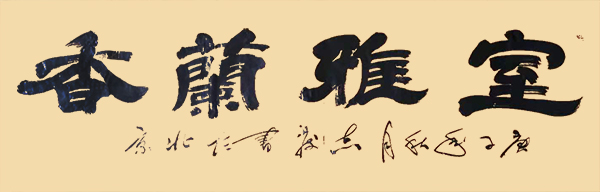 室雅蘭香
庚子年秋月志書於北京